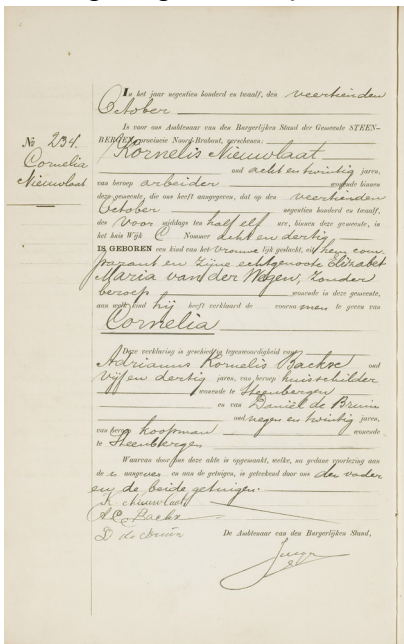 In het jaar negentien honderd en twaalf, den veertienden
October
Is voor ons Ambtenaar van den Burgerlijken Stand der Gemeente STEEN-
BERGEN, provincie Noord-Brabant, verschenen:
Kornelis Nieuwlaat
oud acht en twintig jaren,
van beroep arbeider wonende binnen
deze gemeente, die ons heeft aangegeven, dat op den veertienden
October negentien honderd en twaalf,
des voormiddags ten half elf ure, binnen deze gemeente, in
het huis Wijk C Nommer acht en dertig
IS GEBOREN een kind van het vrouwelijk geslacht, uit hem com
parant en zijne echtgenoote Elizabet
Maria van der Wegen, zonder
beroep wonende in deze gemeente,
aan welk kind hij heeft verklaard de voornamen te geven van
Cornelia
Deze verklaring is geschied in tegenwoordigheid van
Adrianus Kornelis Backx oud
vijf en dertig jaren, van beroep huisschilder
wonende te Steenbergen
en van Daniël de Bruin
oud negen en twintig jaren,
van beroep koopman wonende
te Steenbergen
Waarvan door ons deze akte is opgemaakt, welke, na gedane voorlezing aan
de aangever en aan de getuigen, is geteekend door ons den vader
en de beide getuigen.
K. Nieuwlaat
A C Backx
D de Bruin
De Ambtenaar van den Burgerlijken Stand,
No 234.
Cornelia
Nieuwlaat